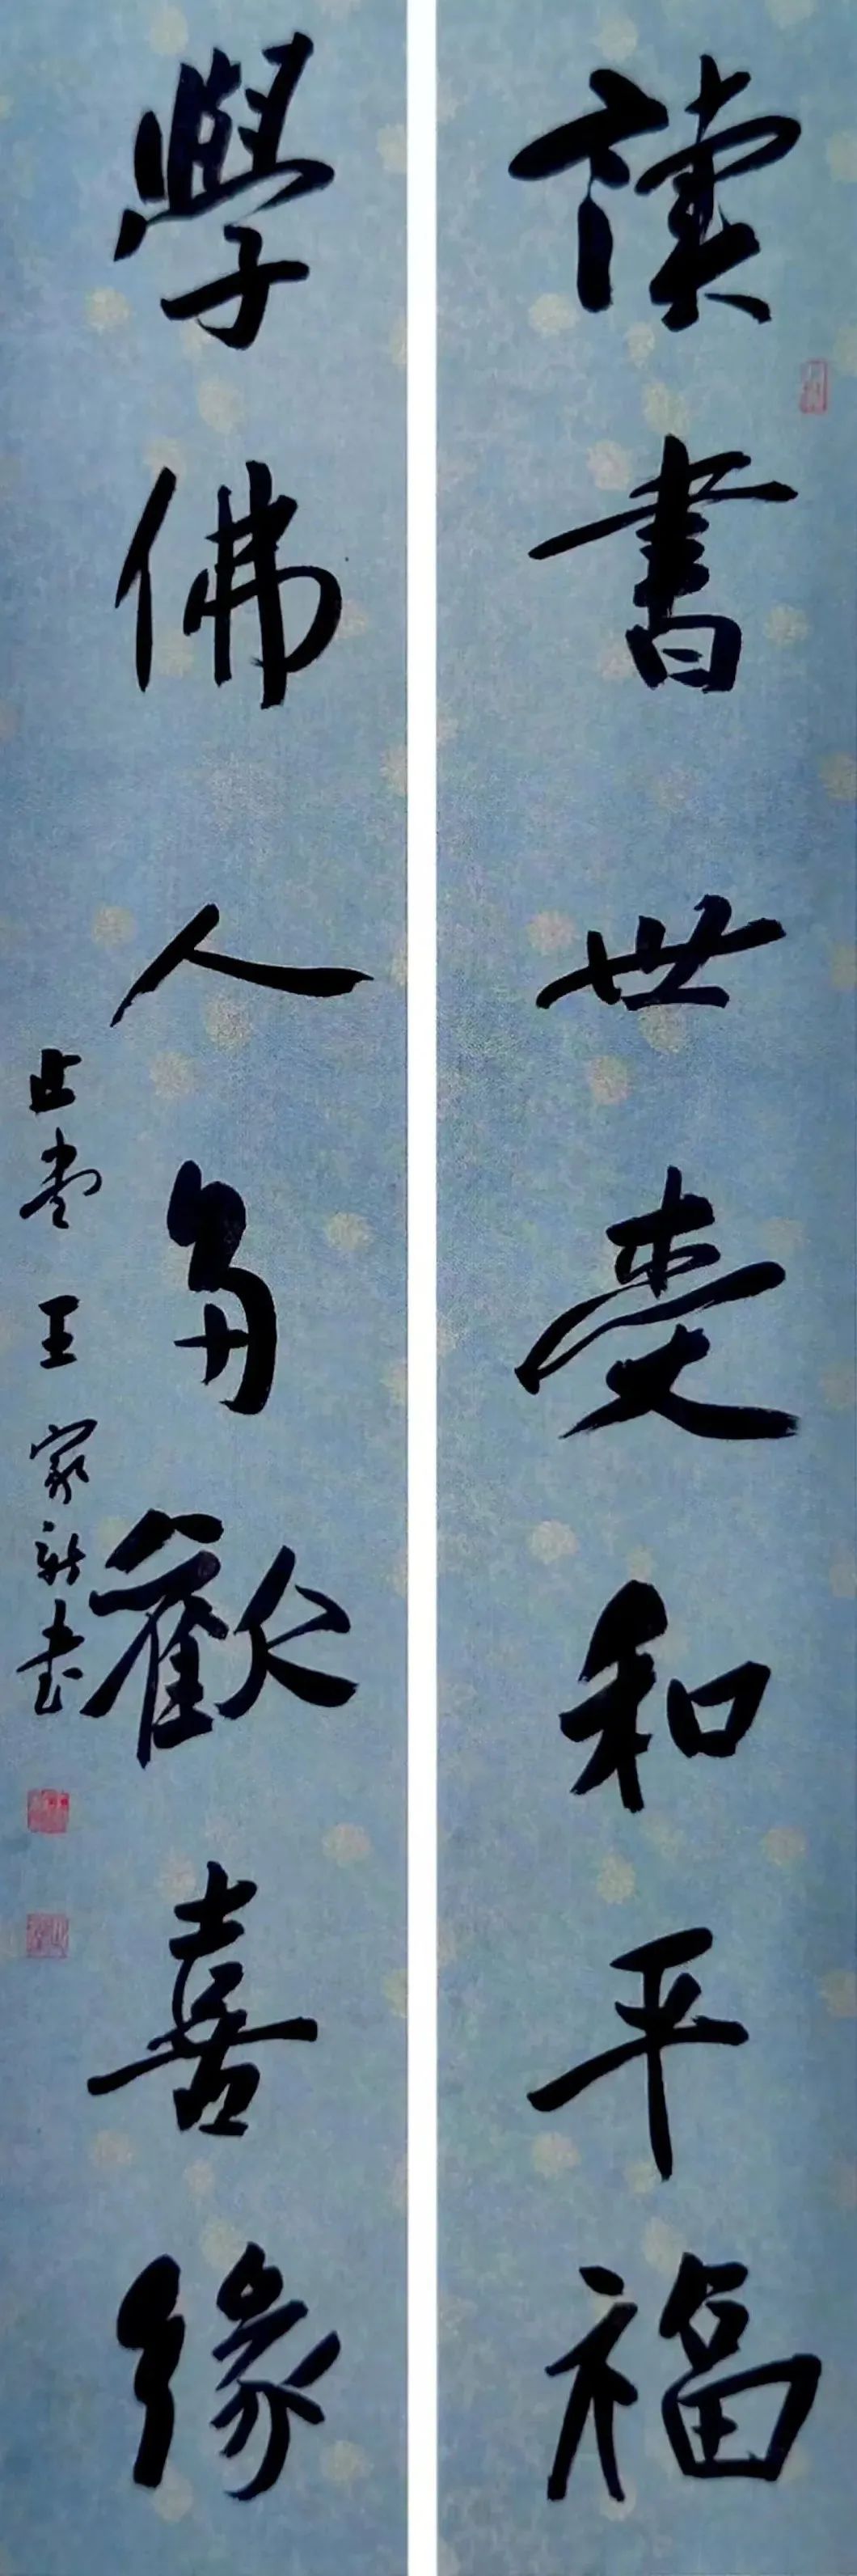 讀書世受和平福
學佛人多歡喜緣
止堂王家新書